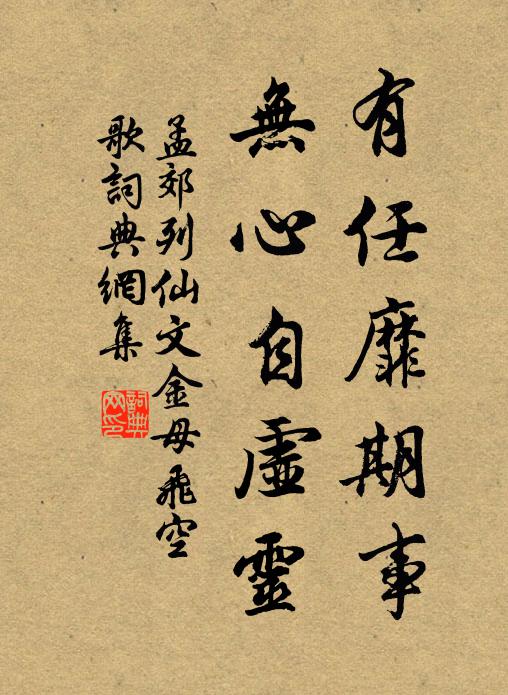 有任靡期事
無心自虛靈
孟郊列仙文金母飛空
歌詞典網集
詞典網印